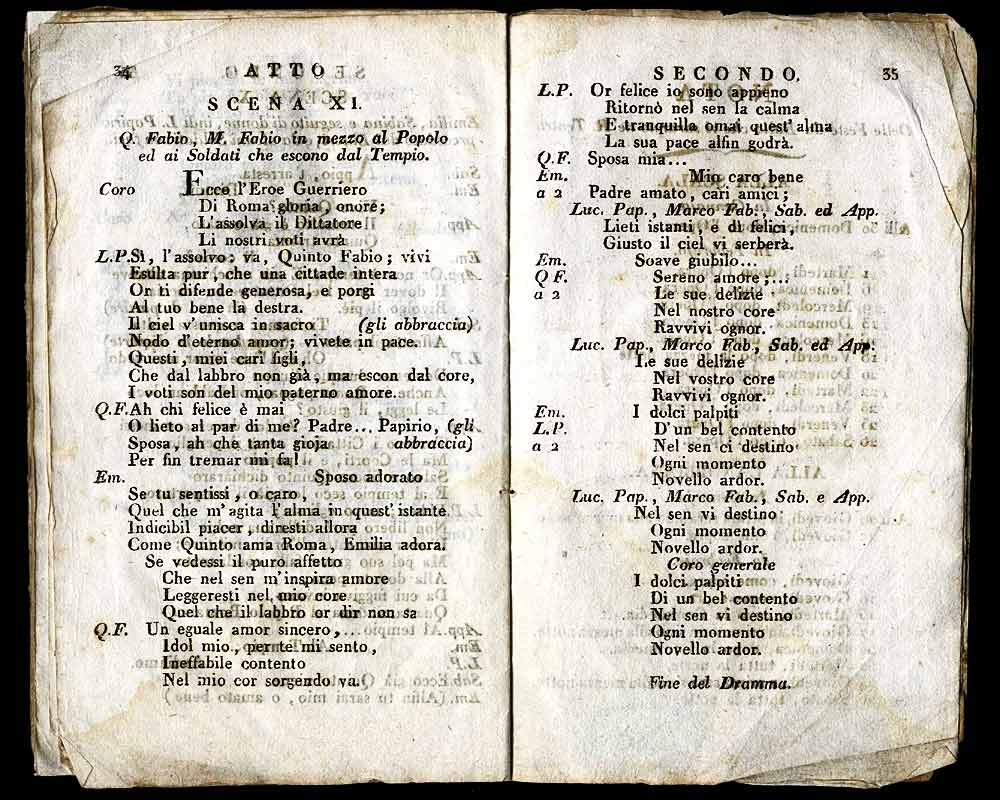 34 ATTO
SCENA XI.
Q. Fabio, M. Fabio in mezzo al Popolo
ed ai Soldati che escono dal Tempio.
Coro Ecco l'Eroe Guerriero
Di Roma gloria, onore;
L'assolva il Dittatore
Li nostri voti avrà
L.P. Sì, l'assolvo: va, Quinto Fabio; vivi
Esulta pur, che una cittade intera
Or ti difende generosa, e porgi
Al tuo bene la destra.
Il ciel v'unisca in sacro (gli abbraccia)
Nodo d'eterno amor; vivete in pace.
Questi, miei cari figli,
Che dal labbro non già, ma escon dal core,
I voti son del mio paterno amore.
Q.F. Ah chi felice è mai
O lieto al par di me? Padre... Papirio, (gli
Sposa, ah che tanta gioja abbraccia)
Per fin tremar mi fa!
Em. Sposo adorato
Se tu sentissi, o caro,
Quel che m'agita l'alma in quest'istante
Indicibil piacer, diresti allora
Come Quinto ama Roma, Emilia adora.
Se vedessi il puro affetto
Che nel sen m'inspira amore
Leggeresti nel mio core
Quel che il labbro or dir non sa
Q.F. Un eguale amor sincero,
Idol mio, per te mi sento,
Ineffabile contento
Nel mio cor sorgendo va.
SECONDO. 35
L.P. Or felice io sono appieno
Ritornò nel sen la calma
E tranquilla omai quest'alma
La sua pace alfin godrà.
Q.F. Sposa mia...
Em. Mio caro bene
a 2 Padre amato, cari amici;
Luc. Pap., Marco Fab., Sab. ed App.
Lieti istanti, e dì felici,
Giusto il ciel vi serberà.
Em. Soave giubilo...
Q F. Sereno amore;...
a 2 Le sue delizie
Nel nostro core
Ravvivi ognor.
Luc. Pap., Marco Fab., Sab. ed App.
Le sue delizie
Nel vostro core
Ravvivi ognor.
Em. I dolci palpiti
L.P. D'un bel contento
a 2 Nel sen ci destino
Ogni momento
Novello ardor.
Luc. Pap., Marco Fab., Sab. e App.
Nel sen vi destino
Ogni momento
Novello ardor.
Coro generale
I dolci palpiti
Di un bel contento
Nel sen vi destino
Ogni momento
Novello ardor.
Fine del Dramma.